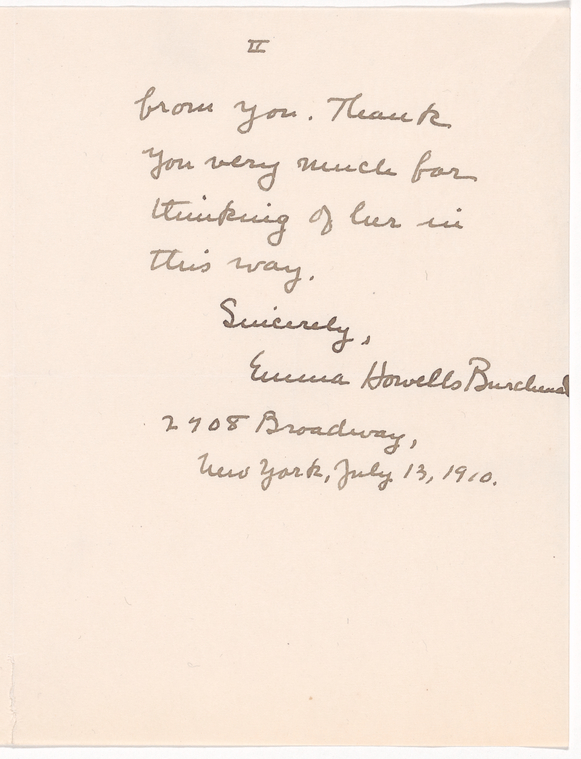 II
from you. Thank
you very much for
thinking of her in
this way.
Sincerely,
Emma Howells Burchenal
2708 Broadway,
New York, July 13, 1910.